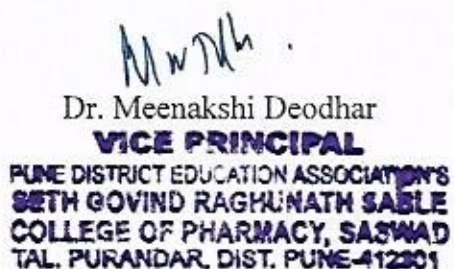 Dr. Meenakshi Deodhar
VICE PRINCIPAL
PUNE DISTRICT EDUCATION ASSOCIATION'S
SETH GOVIND RAGHUNATH SABLE
COLLEGE OF PHARMACY, SASWAD
TAL. PURANDAR, DIST. PUNE-412301